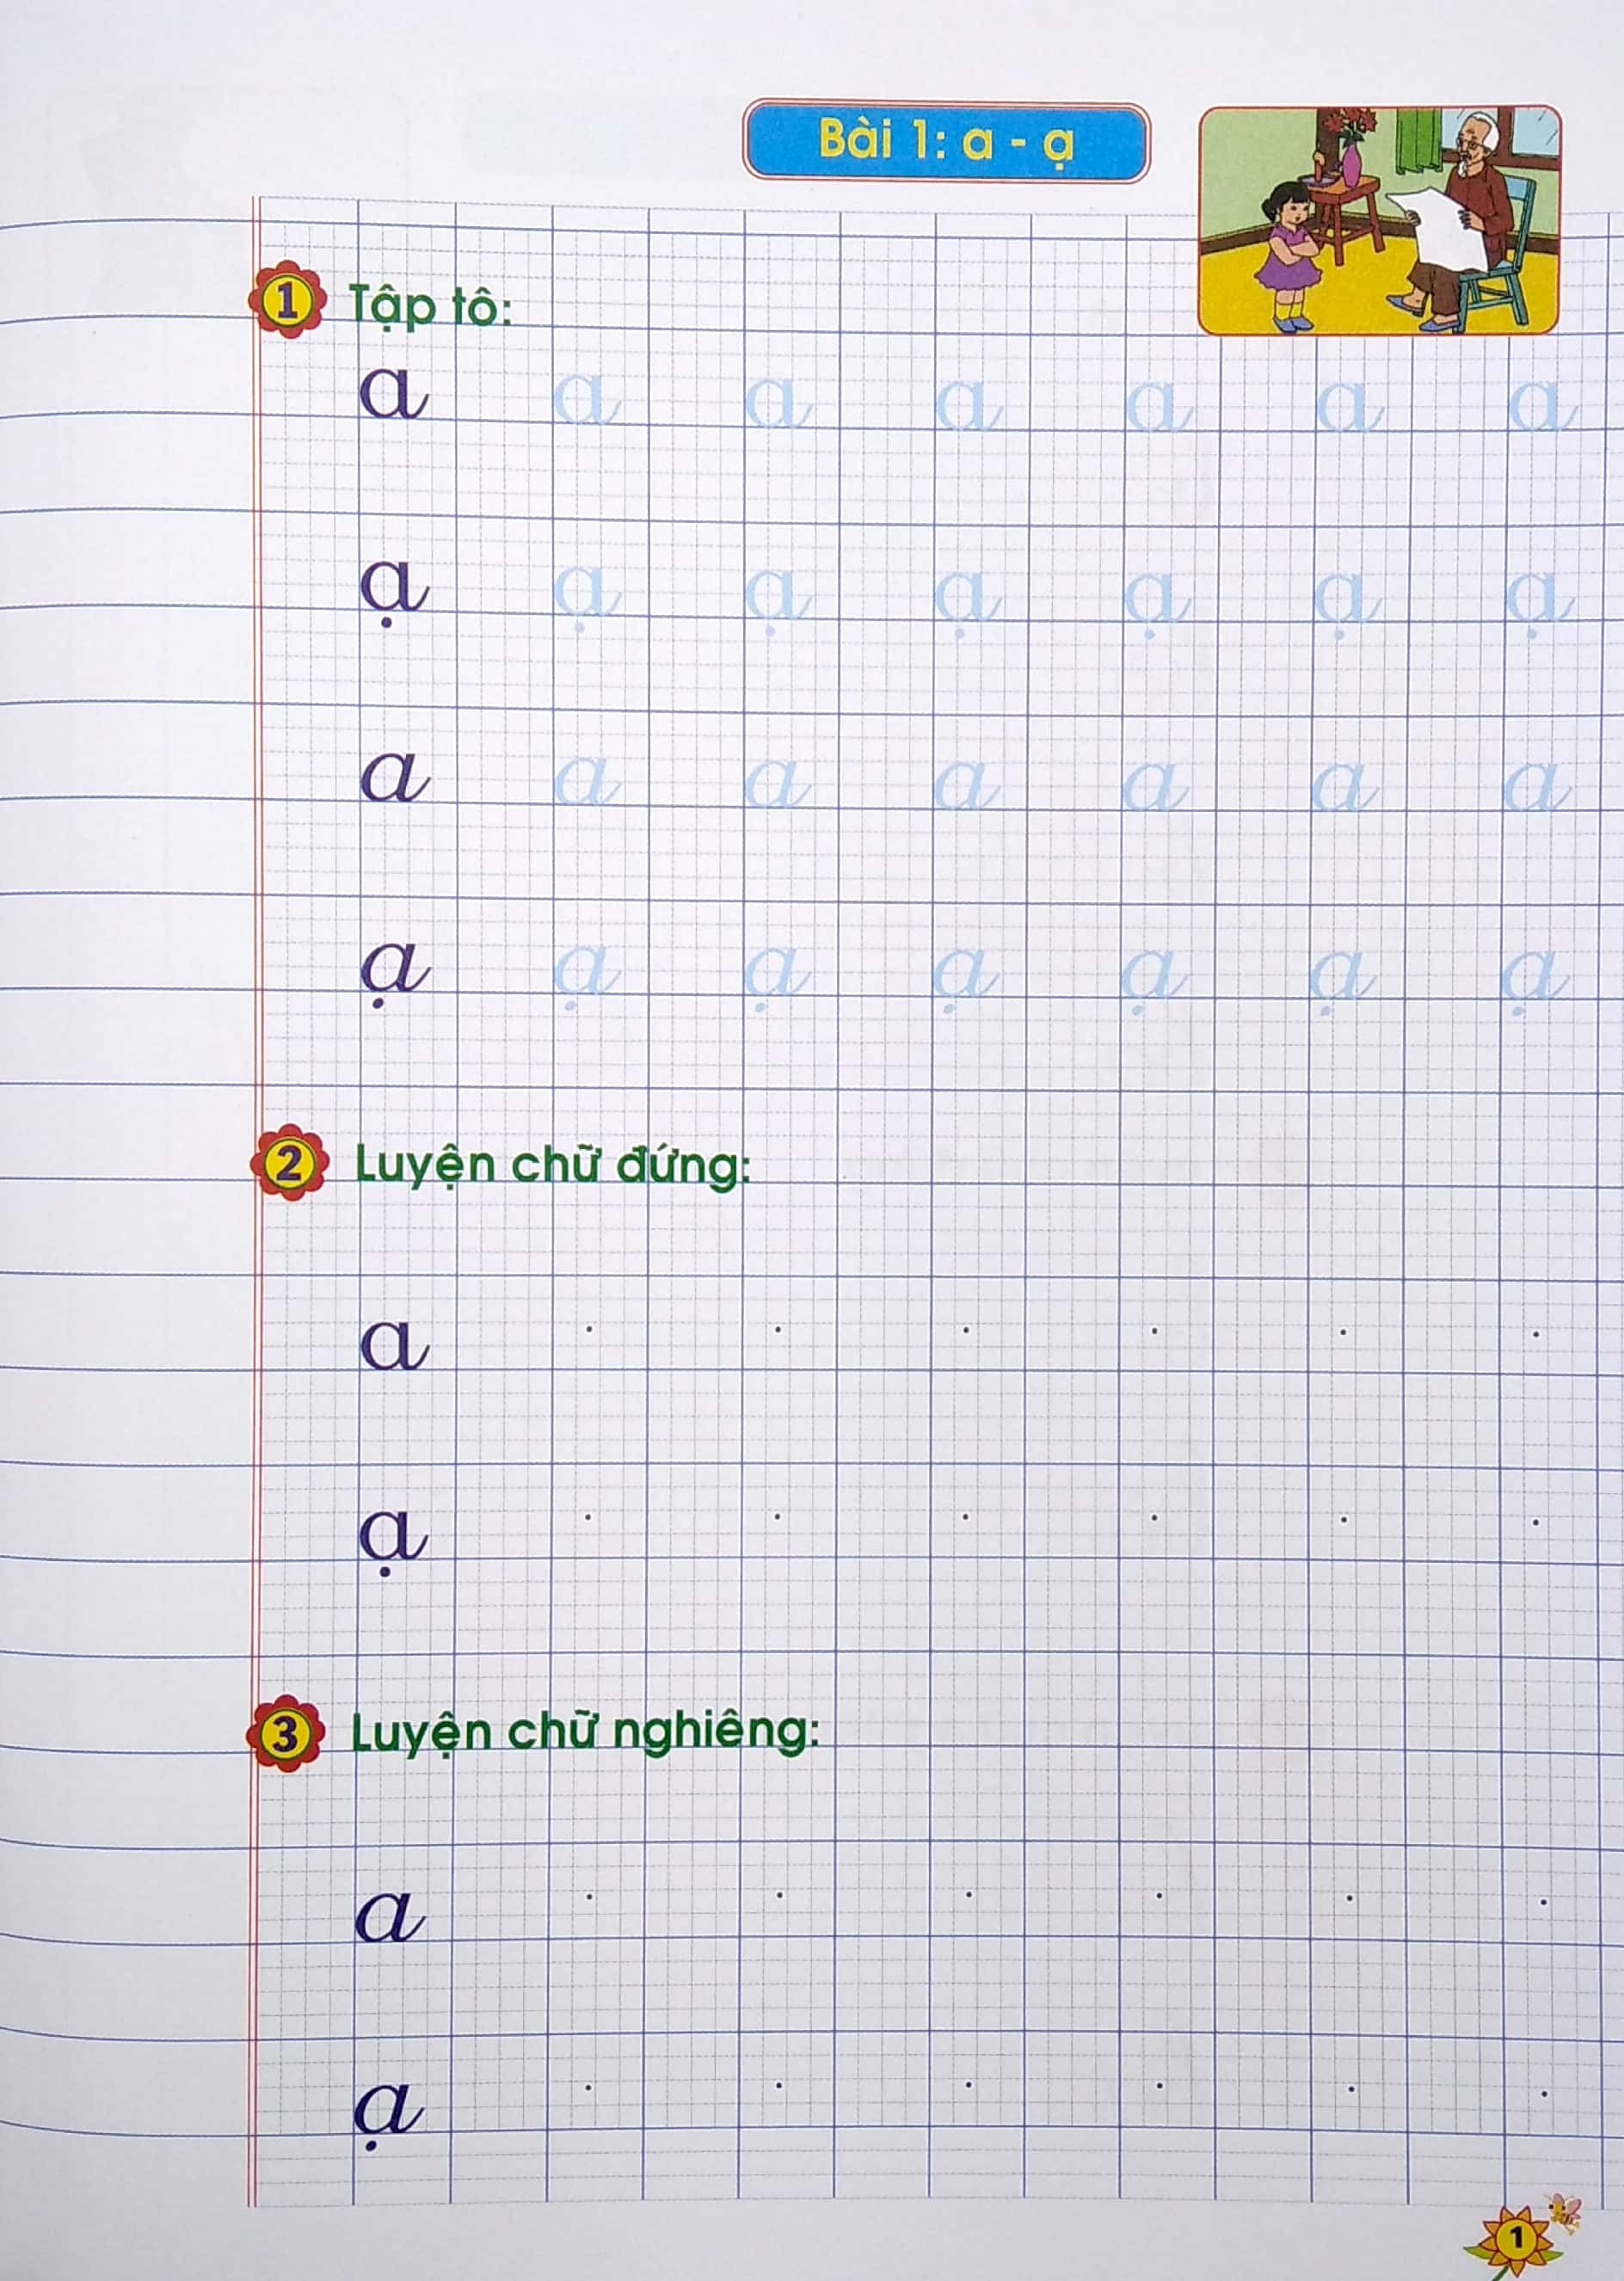 Bài 1: a - ạ
1 Tập tô:
a a a a a a a
ạ ạ ạ ạ ạ ạ ạ
a a a a a a a
ạ ạ ạ ạ ạ ạ ạ
2 Luyện chữ đứng:
a
ạ
3 Luyện chữ nghiêng:
a
ạ
1